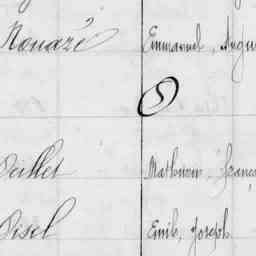 Nouazé Emmanuel, Augu
S
Oillet Mathurin, Franc
Oisel Emile, Joseph